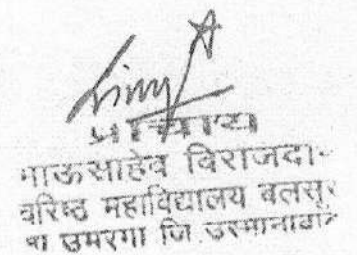 प्राचार्य
भाऊसाहेब विराजदा
वरिष्ठ महाविद्यालय बलसूर
ता उमरगा जि उस्मानाबाद